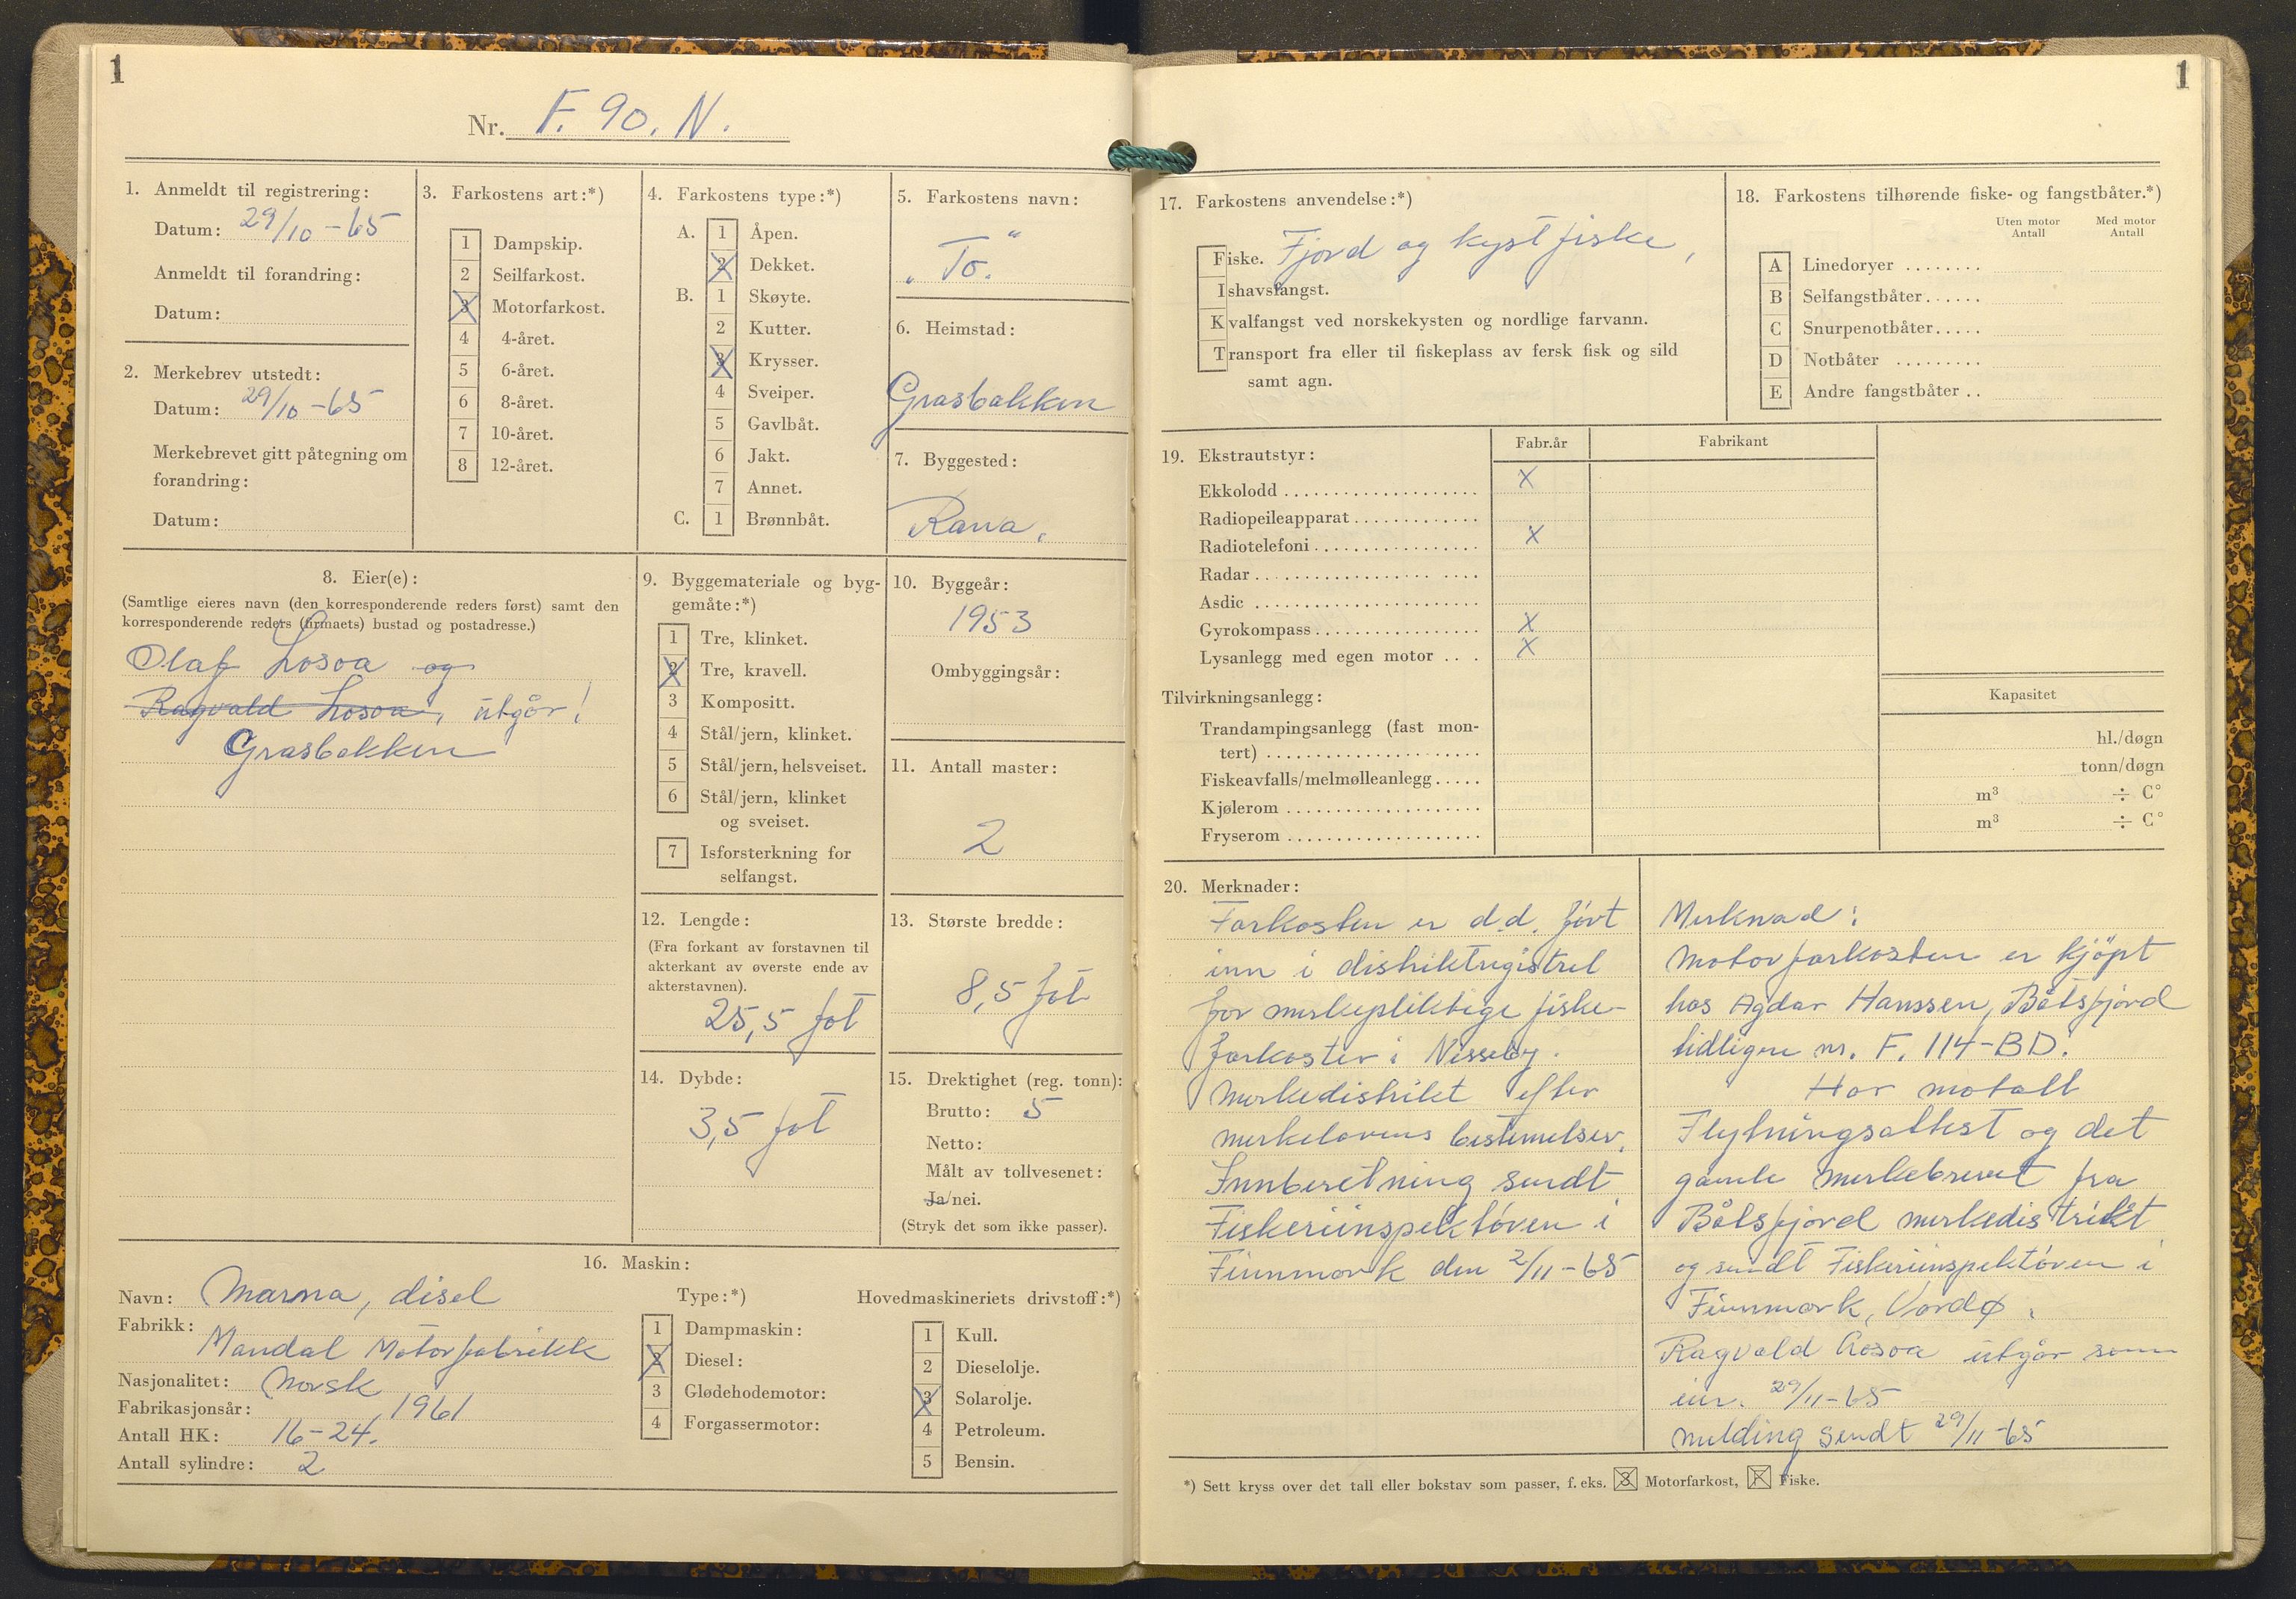 1
Nr. F. 90. N.
1. Anmeldt til registrering:
Datum: 29/10-65
Anmeldt til forandring:
Datum:
2. Merkebrev utstedt:
Datum: 29/10-65
Merkebrevet gitt påtegning om
forandring:
Datum:
3. Farkostens art:*)
1 Dampskip.
2 Seilfarkost.
3 Motorfarkost.
4 4-året.
5 6-året.
6 8-året.
7 10-året.
8 12-året.
4. Farkostens type:*)
A. 1 Åpen.
2 Dekket.
B. 1 Skøyte.
2 Kutter.
3 Krysser.
4 Sveiper.
5 Gavlbåt.
6 Jakt.
7 Annet.
C. 1 Brønnbåt.
5. Farkostens navn:
"To."
6. Heimstad:
Grasbakken
7. Byggested:
Rana.
8. Eier(e):
(Samtlige eieres navn (den korresponderende reders først) samt den
korresponderende reders (firmaets) bustad og postadresse.)
Olaf Losoa og
Ragvald Losoa, utgår!
Grasbakken
9. Byggemateriale og byg-
gemåte:*)
1 Tre, klinket.
2 Tre, kravell.
3 Kompositt.
4 Stål/jern, klinket.
5 Stål/jern, helsveiset.
6 Stål/jern, klinket
og sveiset.
7 Isforsterkning for
selfangst.
10. Byggeår:
1953
Ombyggingsår:
11. Antall master:
2
12. Lengde:
(Fra forkant av forstavnen til
akterkant av øverste ende av
akterstavnen).
25,5 fot
13. Største bredde:
8,5 fot
14. Dybde:
3,5 fot
15. Drektighet (reg. tonn):
Brutto: 5
Netto:
Målt av tollvesenet:
Ja/nei.
(Stryk det som ikke passer).
16. Maskin:
Navn: Marna, disel
Fabrikk:
Mandal Motorfabrikk
Nasjonalitet: Norsk
Fabrikasjonsår: 1961
Antall HK: 16-24.
Antall sylindre: 2
Type:*)
1 Dampmaskin:
2 Diesel:
3 Glødehodemotor:
4 Forgassermotor:
Hovedmaskineriets drivstoff:*)
1 Kull.
2 Dieselolje.
3 Solarolje.
4 Petroleum.
5 Bensin.
1
17. Farkostens anvendelse:*)
Fiske. Fjord og kystfiske,
Ishavsfangst.
Kvalfangst ved norskekysten og nordlige farvann.
Transport fra eller til fiskeplass av fersk fisk og sild
samt agn.
18. Farkostens tilhørende fiske- og fangstbåter.*)
Uten motor Med motor
Antall Antall
A Linedoryer ........
B Selfangstbåter......
C Snurpenotbåter.....
D Notbåter .........
E Andre fangstbåter ..
19. Ekstrautstyr:
Fabr.år Fabrikant
Ekkolodd .................... X
Radiopeileapparat .............
Radiotelefoni ................. X
Radar ......................
Asdic .......................
Gyrokompass ................. X
Lysanlegg med egen motor ... X
Tilvirkningsanlegg:
Kapasitet
Trandampingsanlegg (fast mon-
tert) ...................... hl./døgn
Fiskeavfalls/melmølleanlegg ..... tonn/døgn
Kjølerom .................... m³ ÷ C°
Fryserom .................... m³ ÷ C°
20. Merknader:
Farkosten er d.d. ført
inn i distriktregistret
for merkepliktige fiske-
farkoster i Nesseby.
Merkedistriket efter
merkelovens bestemelser.
Innberetning sendt
Fiskeriinspektøren i
Finnmark den 2/11-65
Merknad:
Motorfarkosten er kjøpt
hos Agdar Hanssen, Båtsfjord
tidligere nr. F. 114-BD.
Har motatt
Flytningsattest og det
gamle merkebrevet fra
Båtsfjord merkedistrikt
og sendt Fiskeriinspektøren i
Finnmark, Vardø.
Ragvald Losoa utgår som
eier. 29/11-65
melding sendt 29/11-65
*) Sett kryss over det tall eller bokstav som passer, f. eks. 3 Motorfarkost, F Fiske.